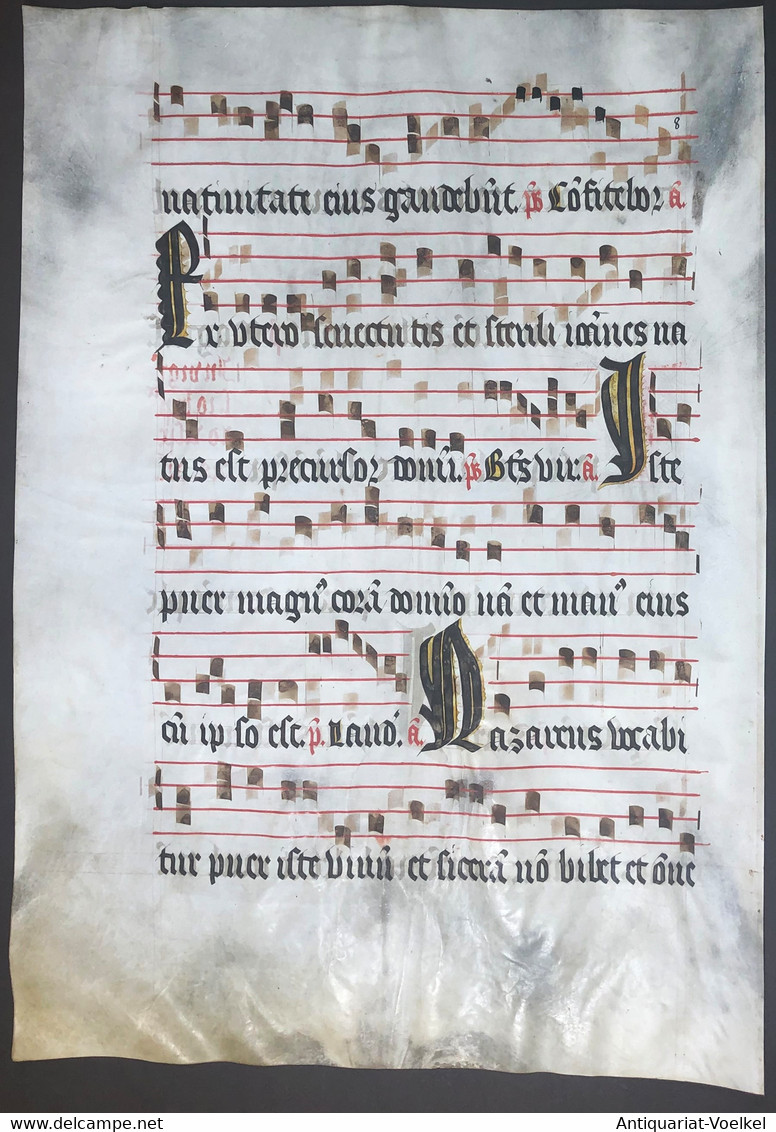 8
nativitate eius gaudebũt. p̃s Cõfitebor ã.
Ex utero senectu tis et sterili ioãnes na
tus est precursor domĩ. p̃s Bt̃s vir. ã. Iste
puer magnꝰ corã domĩo nã et manꝰ eius
cũ ip so est. p̃. Laud'. ã. Nazareus vocabi
tur puer iste vinũ et sicerã nõ bibet et õne
Antiquariat-Voelkel